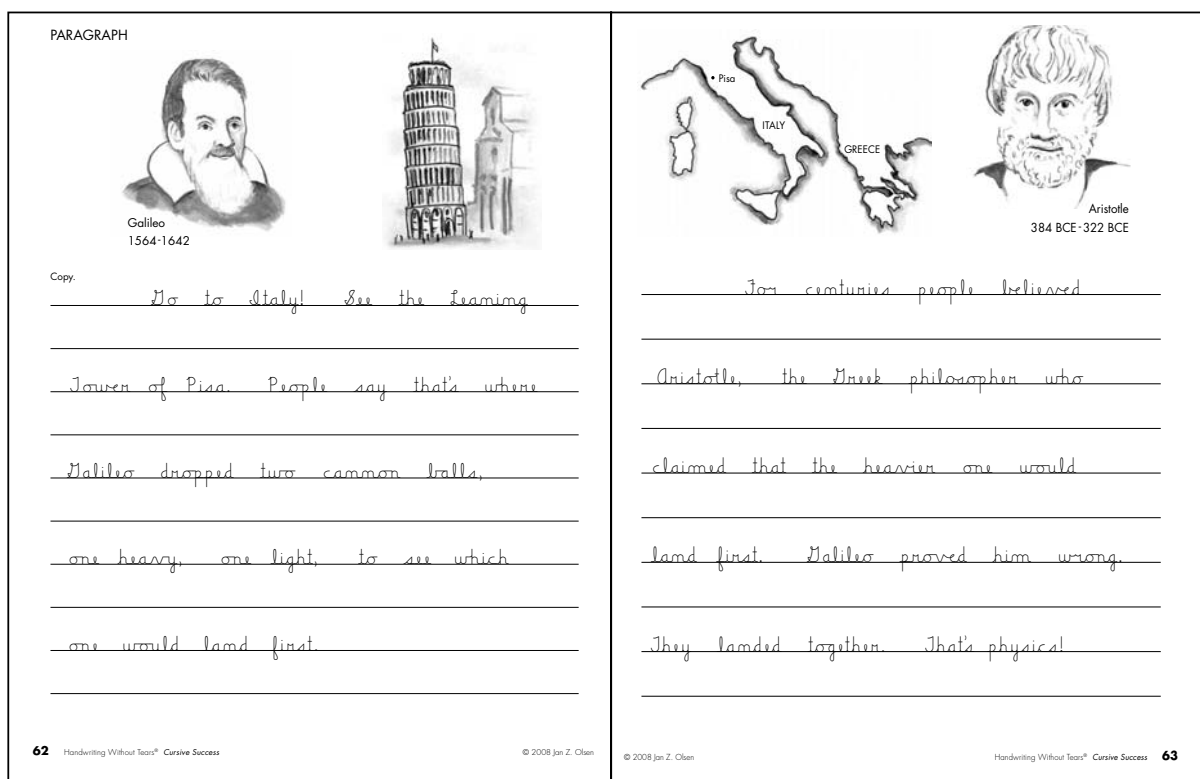 PARAGRAPH
Galileo
1564-1642
Copy.
Go to Italy! See the Leaning
Tower of Pisa. People say that's where
Galileo dropped two cannon balls,
one heavy, one light, to see which
one would land first.
62 Handwriting Without Tears® Cursive Success © 2008 Jan Z. Olsen
• Pisa
ITALY
GREECE
Aristotle
384 BCE-322 BCE
For centuries people believed
Aristotle, the Greek philosopher who
claimed that the heavier one would
land first. Galileo proved him wrong.
They landed together. That's physics!
© 2008 Jan Z. Olsen Handwriting Without Tears® Cursive Success 63